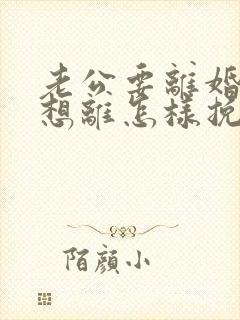 老公要離婚
想離怎樣挽
陌顏小